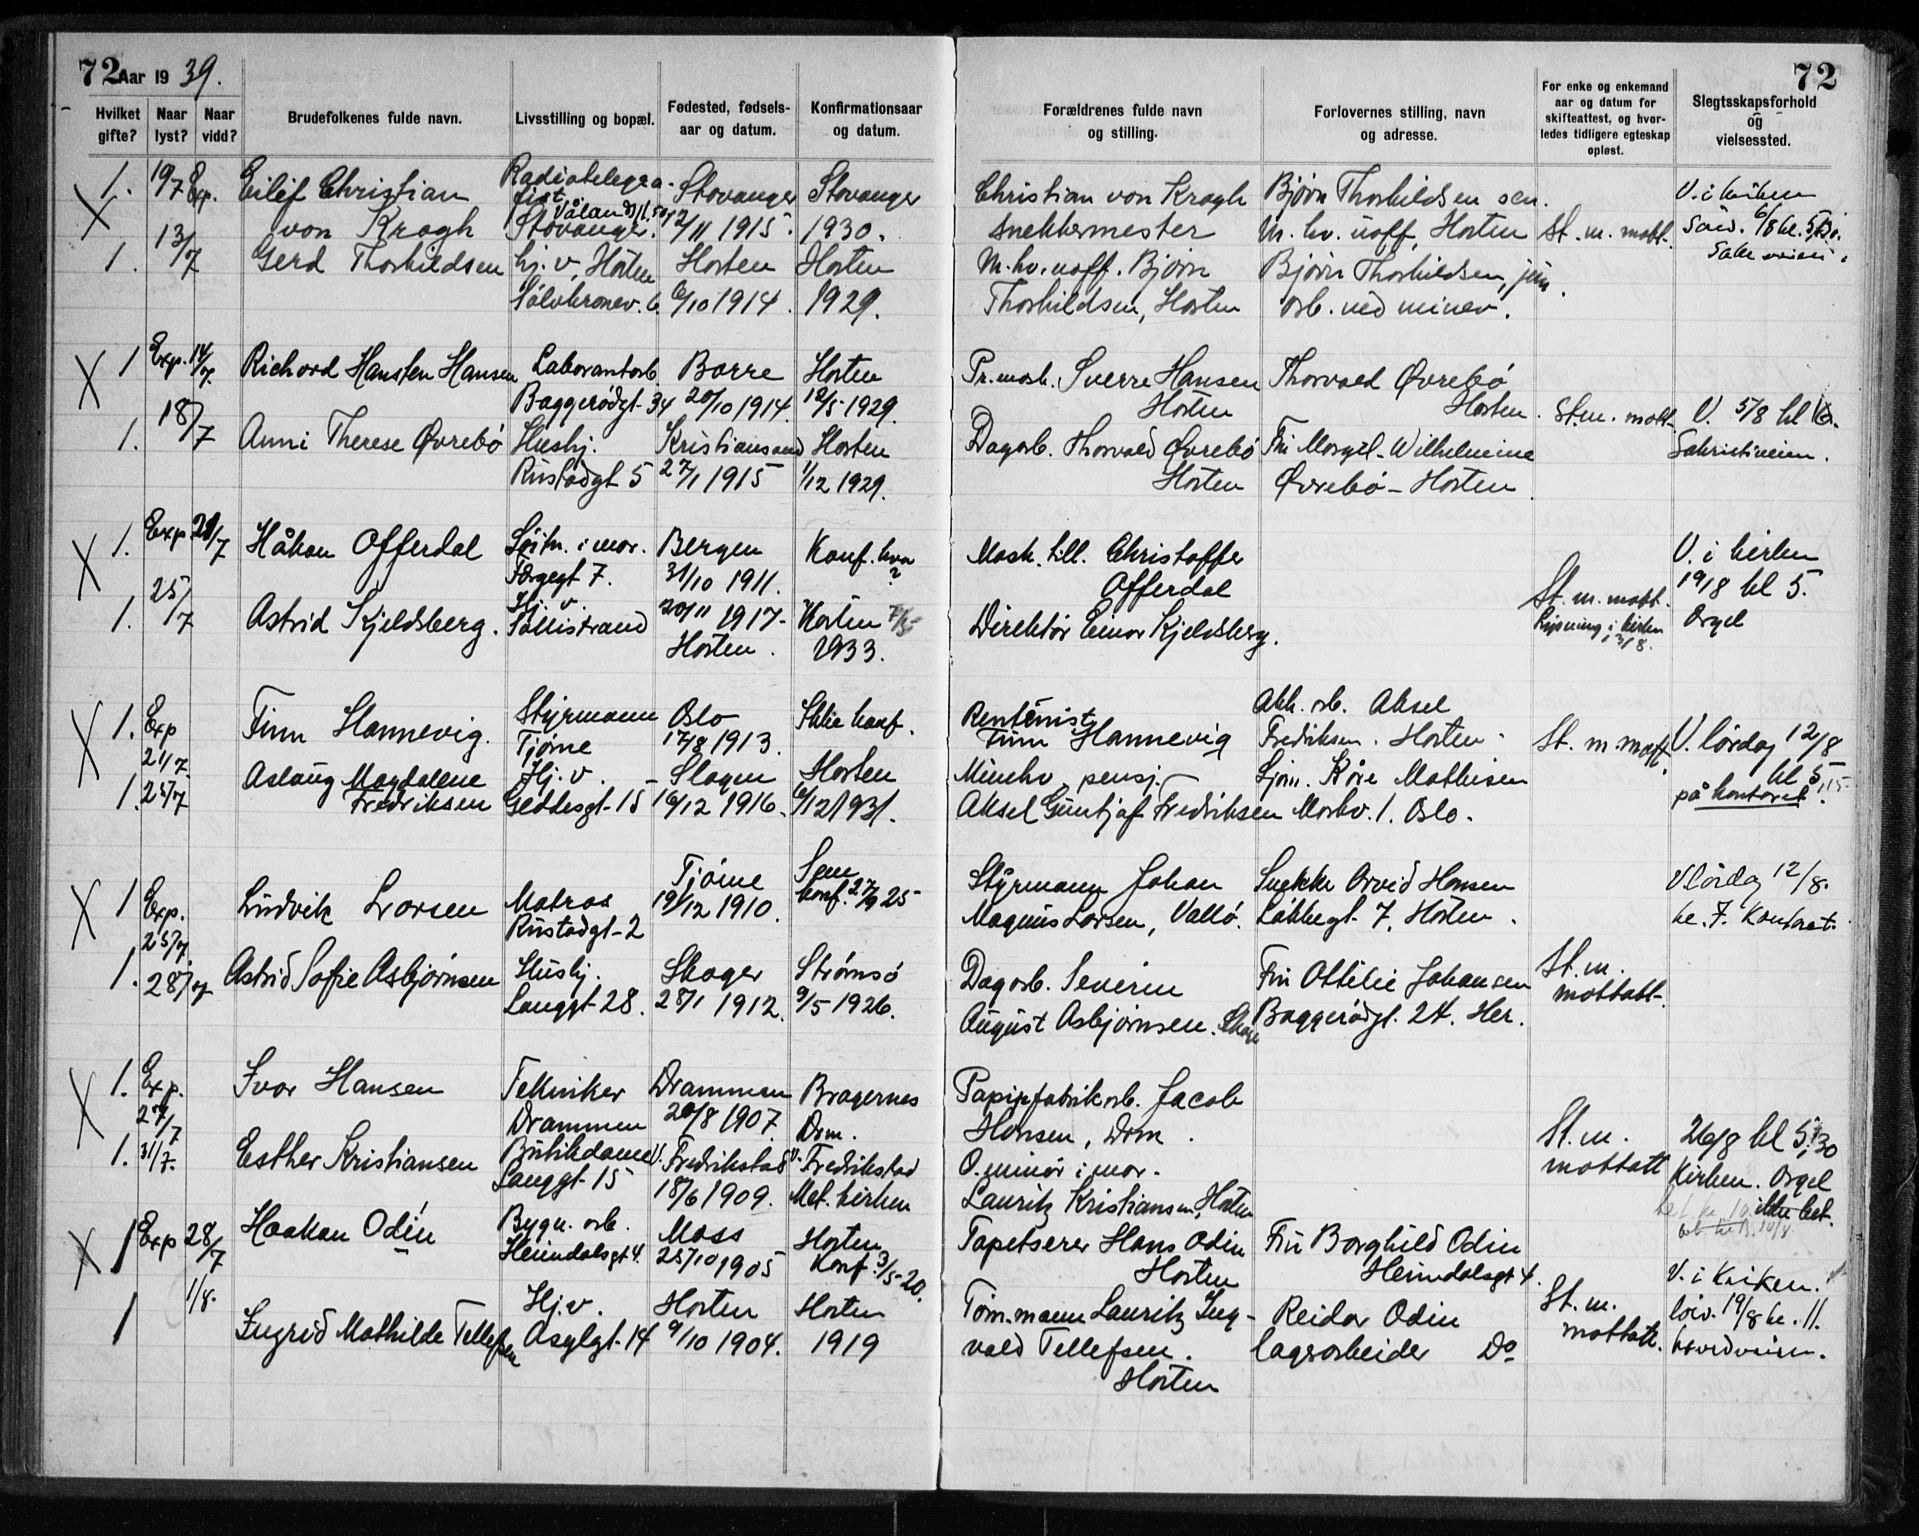 72 Aar 19 39.
Hvilket gifte?
Naar lyst?
Naar vidd?
Brudefolkenes fulde navn.
Livsstilling og bopæl.
Fødested, fødsels-
aar og datum.
Konfirmationsaar
og datum.
Forældrenes fulde navn
og stilling.
Forlovernes stilling, navn
og adresse.
For enke og enkemand
aar og datum for
skifteattest, og hvor-
ledes tidligere egteskap
opløst.
Slegtsskapsforhold
og
vielsessted.
72
1. 19/7 Exp. Eilif Christian
von Kragh
Radiotelegra-
fist
Stavanger.
Stavanger
12/11 1915.
Stavanger
1930.
Christian von Kragh
snekkermester
Bjørn Thorkildsen sen.
M. hv. uoff, Horten
St. m. mott.
V. i kirken
6/8 kl. 5,30.
1. 13/7 Gerd Thorkildsen
hj. v, Horten
Sølvkronev. 6.
Horten
6/10 1914.
Horten
1929.
M. hv. uoff. Bjørn
Thorkildsen, Horten
Bjørn Thorkildsen, jun.
arb. ved minev.
X 1 Exp. 14/7. Richard Hansten Hansen
Laborantarb.
Baggerødgt. 34
Borre
20/10 1914.
Horten
12/5 1929.
Sverre Hansen
Horten
Thorvald Øvrebø
Horten.
St. m. mott.
V. 5/8 kl 6.
Sakristieien.
1. 18/7 Anni Therese Øvrebø
Hushj.
Rustadgt 5
Kristiansand
27/1 1915
Horten
1/12 1929.
Dagarb. Thorvald Øvrebø
Horten
Wilhelmine
Øvrebø - Horten
X 1. Exp 21/7 Håkan Offerdal
Løitn. i mar.
Færgegt 7.
Bergen
31/10 1911.
Konf. hva
?
Mask. till. Christoffer
Offerdal
St. m. mott.
Lysning i kirken
3/8.
V. i kirken
19/8 kl 5.
Orgel
1. 25/7 Astrid Kjeldsberg.
Hj. v.
Søllistrand
20/11 1917.
Horten.
Horten 7/5
1933.
Direktør Einar Kjeldsberg.
X 1. Exp
21/7
Finn Hannevig.
Styrmann
Tjøme
Oslo
17/8 1913.
Ikke konf.
Rentenist
Finn Hannevig
Akk. arb. Aksel
Fredriksen. Horten.
St. m mott.
V. lørdag 12/8
kl 5,15
på kontoret.
1. 25/7 Aslaug Magdalene
Fredriksen
Hj. v.
Geddesgt. 15
Slagen
16/12 1916.
Horten
6/12 1931.
Minehv. pensj.
Aksel Guntjof Fredriksen
Sjøm. Kåre Mathisen
Oslo.
X 1 Exp.
25/7.
Ludvik Larsen
Matros
Rustadgt. 2
Tjøme
19/12 1910.
Sem
konf. 27/9 25
Styrmann Johan
Magnus Larsen, Vallø.
Snekker Arvid Hansen
Løkkegt. 7, Horten.
V lørdag 12/8.
kl. 7. Kontoret.
1. 28/7 Astrid Sofie Asbjørnsen
Hushj.
Langgt. 28.
Skoger
28/1 1912.
Strømsø
9/5 1926.
Dagarb. Severin
August Asbjørnsen.
Fru Ottilie Johansen
Baggerødgt. 24. Her.
St. m.
mottatt.
X 1. Exp.
27/7
Ivar Hansen
Tekniker
Drammen
Drammen
20/8 1907.
Bragernes
Drm.
Papirfabrikarb. Jacob
Hansen, Drm.
St. m.
mottatt
26/8 kl 5,30
Kirken. Orgel
ikke bet.
1. 31/7. Esther Kristiansen
Butikdame
Langgt. 15
V. Fredrikstad
18/6 1909.
V. Fredrikstad
Met. kirken
O. minør i mar.
Lauritz Kristiansen, Horten
X 1 Exp 28/7 Haakan Odin
Bygn. arb.
Heimdalsgt 4.
Moss
25/10 1905
Horten
Konf. 3/5-20.
Tapetserer Hans Odin
Horten
Fru Borghild Odin
Heimdalsgt 4.
St. m.
mottatt.
V. i Kirken.
19/8 kl. 11.
1 1/8. Ingrid Mathilde Tellefsen
Hj. v.
Asylgt. 14
Horten
9/10 1904.
Horten
1919
Tøm. mann Lauritz Ing-
vald Tellefsen.
Horten
Reidar Odin
lagerarbeider Do